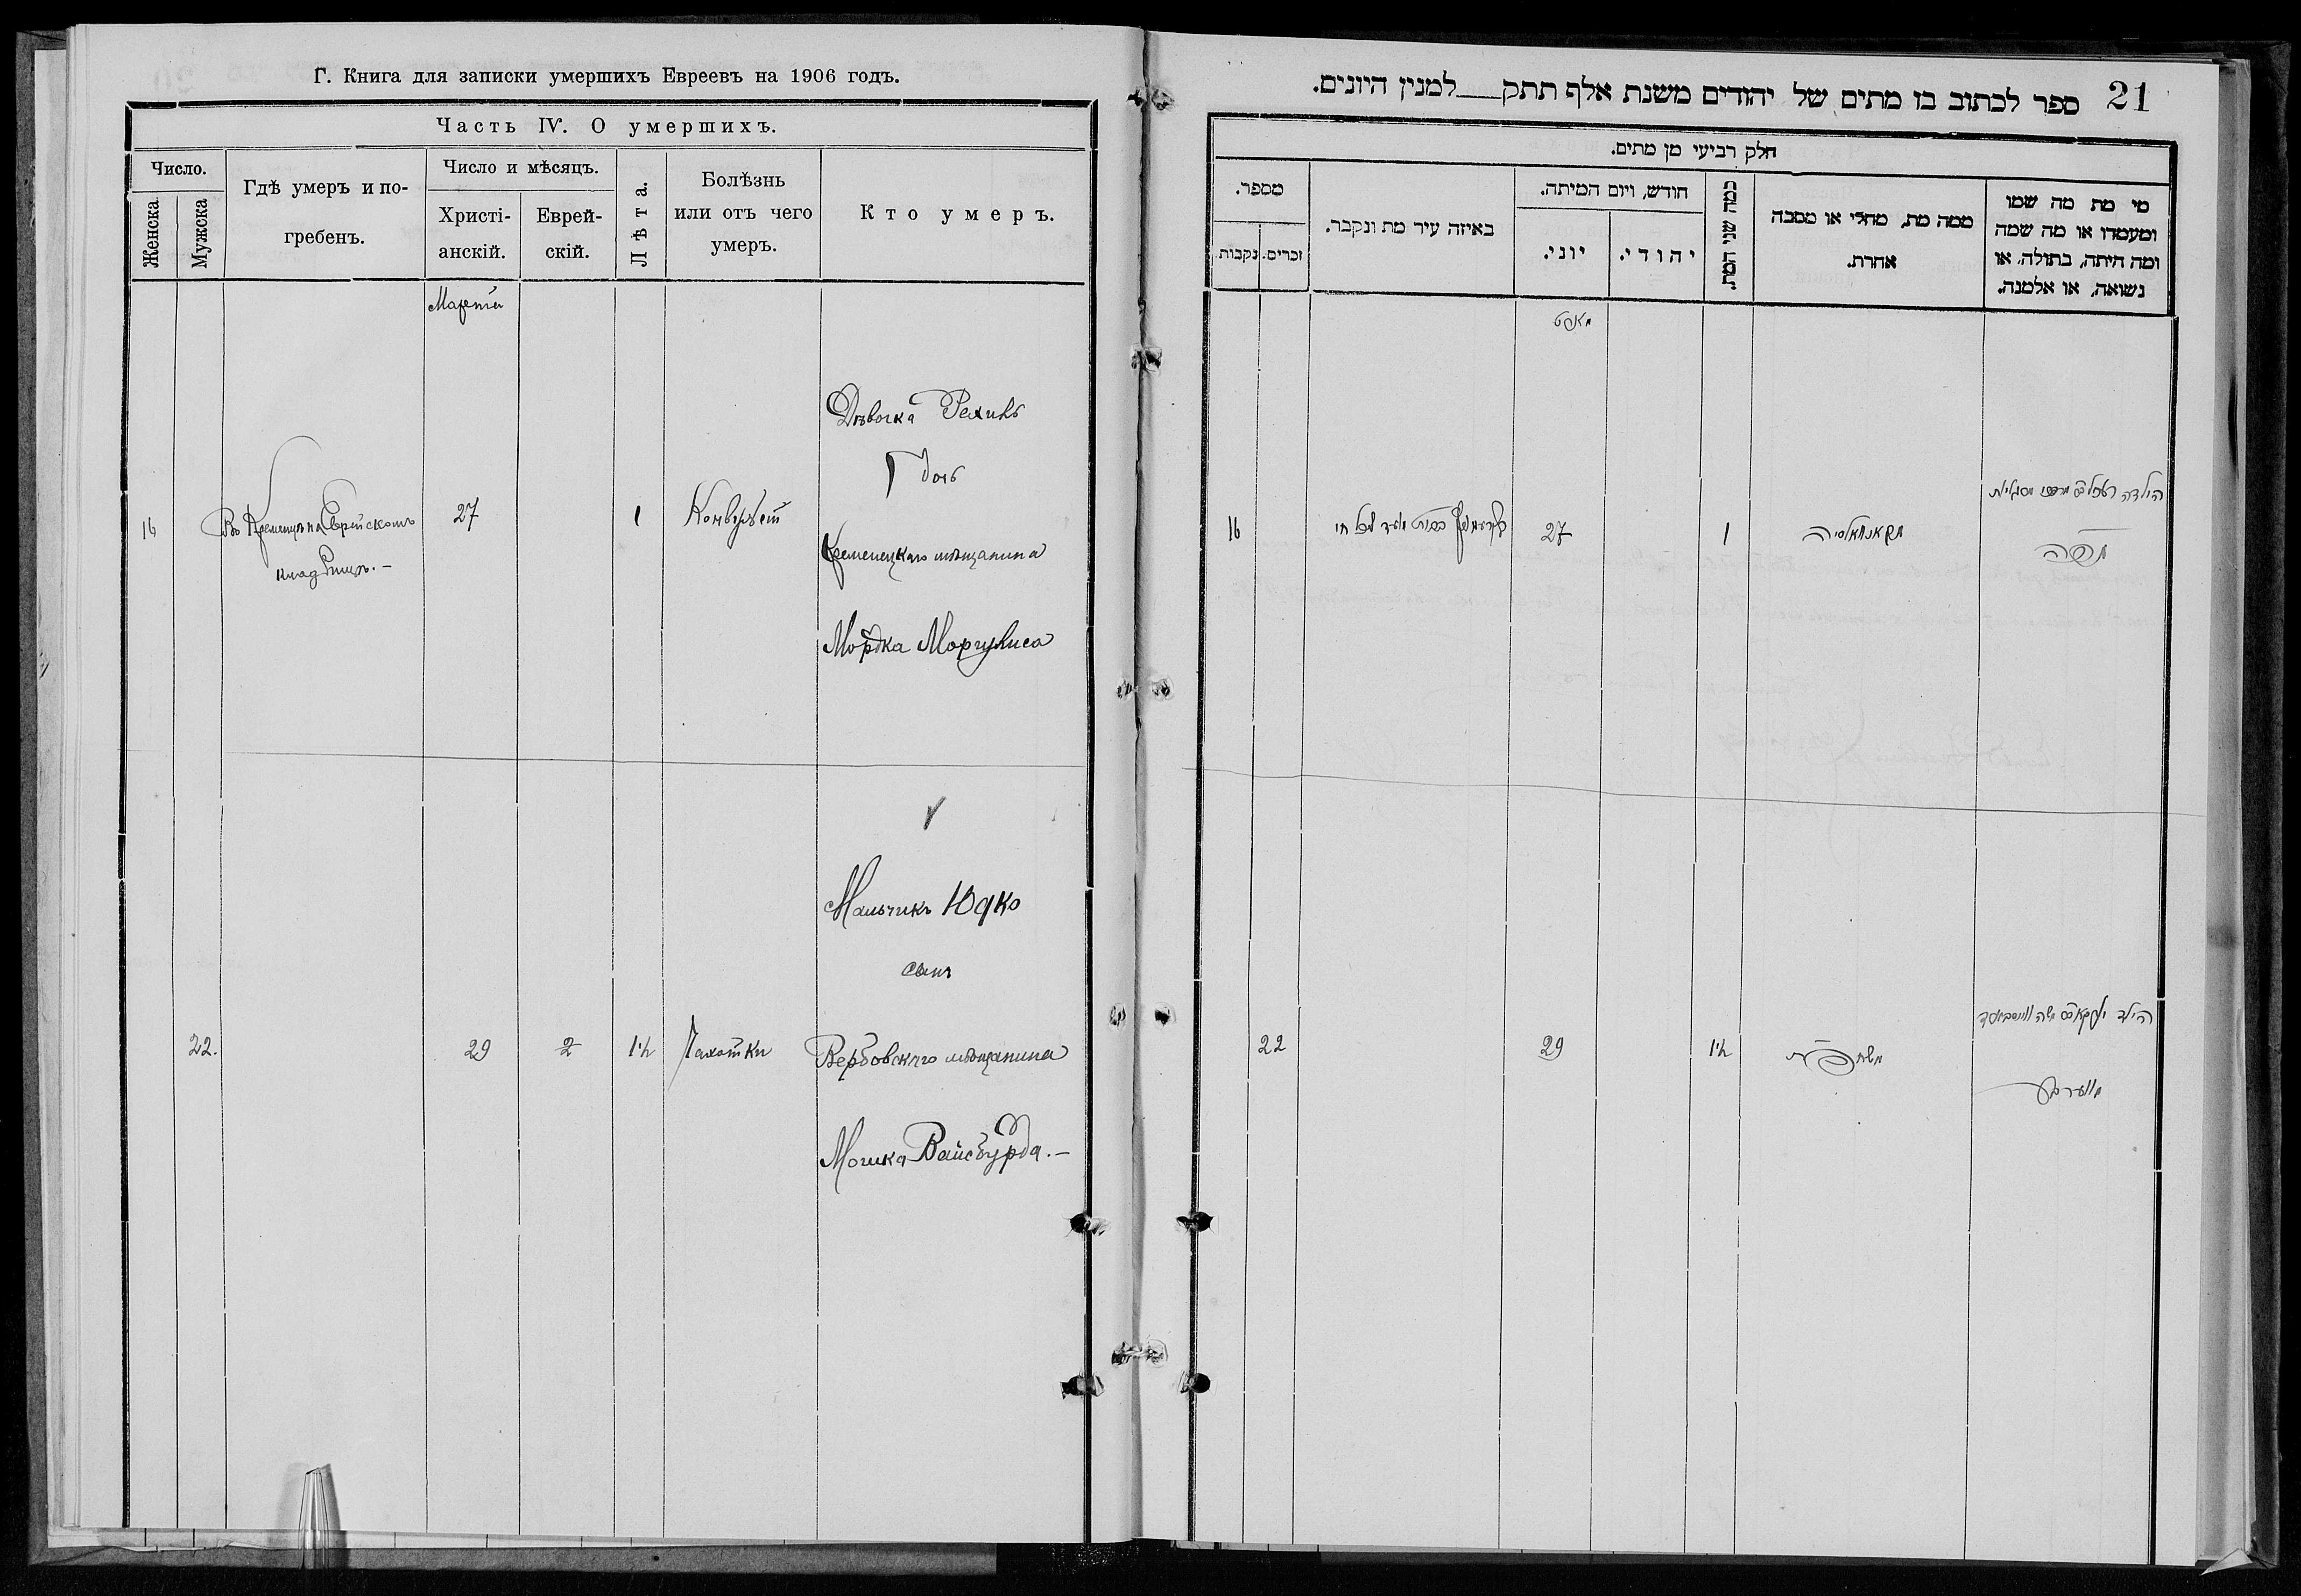 Г. Книга для записки умершихъ Евреевъ на 1906 годъ.
Часть IV. О умершихъ.
Число.
Женска
Мужска
Гдѣ умеръ и по-
гребенъ.
Число и мѣсяцъ.
Христі-
анскій.
Еврей-
скій.
Лѣта.
Болѣзнь
или отъ чего
умеръ.
Кто умеръ.
Марта
16
Въ Кременцѣ на Еврейскомъ
кладбищѣ. —
27
1
Дѣвочка
дочь
Кременецкаго мѣщанина
Мордка Моргулиса
22.
29
2
1½
Чахотки
Мальчикъ Юдко
сынъ
Вербовскаго мѣщанина
Мошка Вайсбурда. —
21
ספר לכתוב בו מתים של יהודים משנת אלף תתק___למנין היונים.
חלק רביעי מן מתים.
מספר.
נקבות
זכרים.
באיזה עיר מת ונקבר.
חודש, ויום המיתה.
יוני.
יהודי.
כמה שני המת.
ממה מת, מחלי או מסבה
אחרת.
מי מת מה שמו
ומעמדו או מה שמה
ומה היתה, בתולה, או
נשואה, או אלמנה.
מארט
16
27
1
הילדה
22
29
1½
הילד